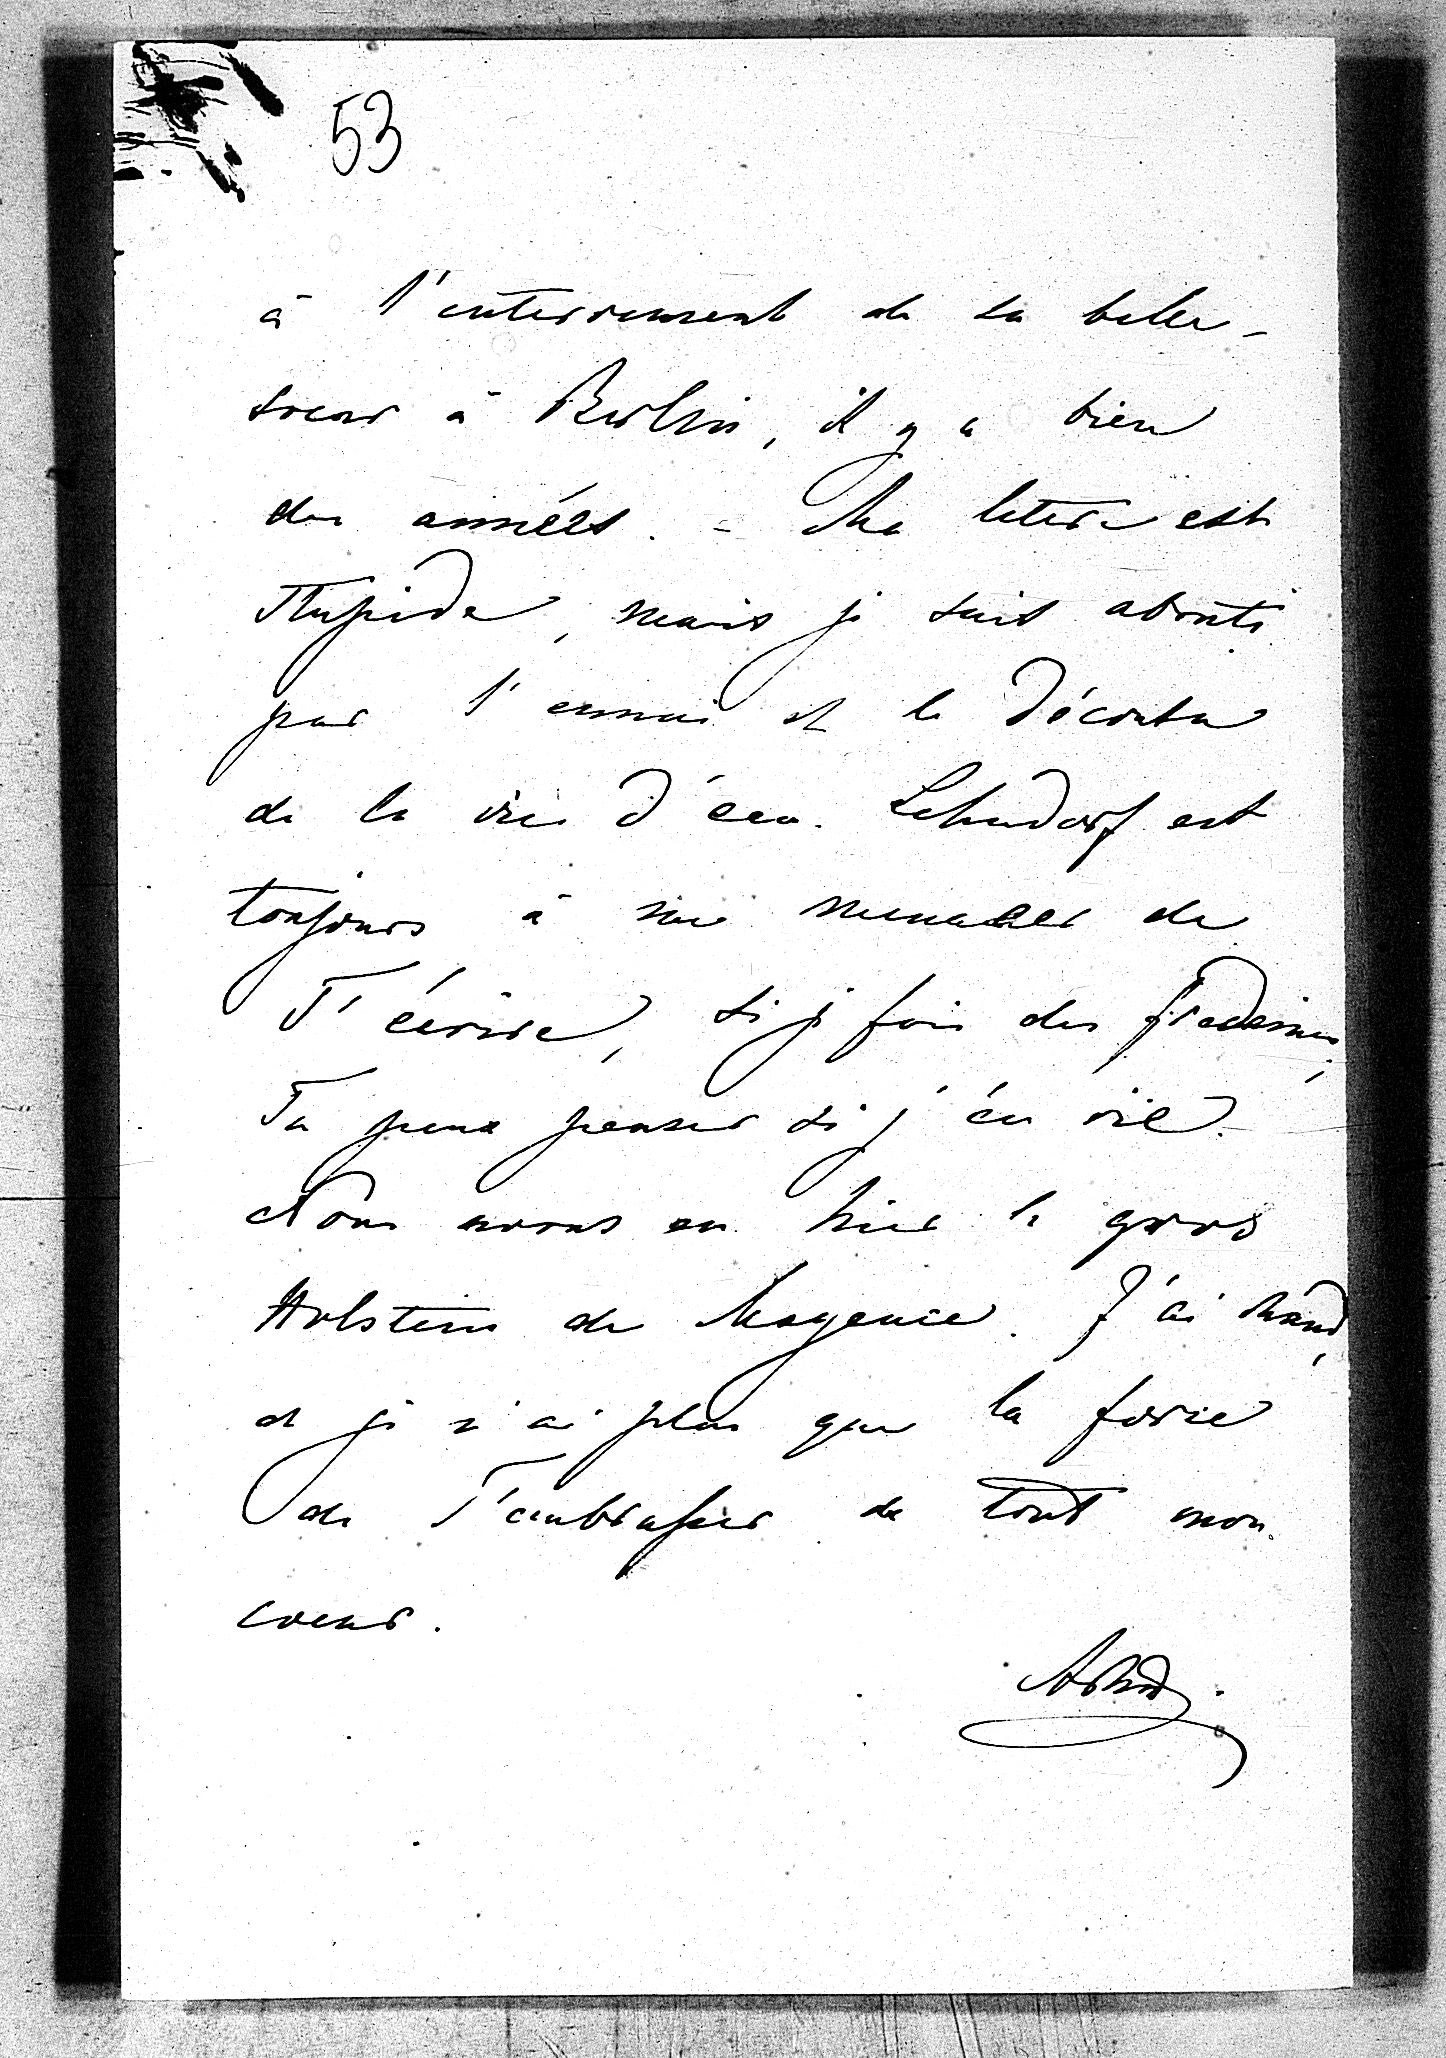 53
à l'enterrement de sa belle-
soeur à Berlin, il y a bien
des années. - Ma lettre est
stupide, mais je suis abruti
par l'ennui et le décousu
de la vie d'eau. Lehndorf est
toujours à me menacer de
T'écrire, si je fais des fredaines,
Tu peux penser si j'en ris.
Nous avons eu hier le gros
Holstein de Mayence. J'ai chaud,
et je n'ai plus que la force
de T'embrasser de tout mon
coeur.